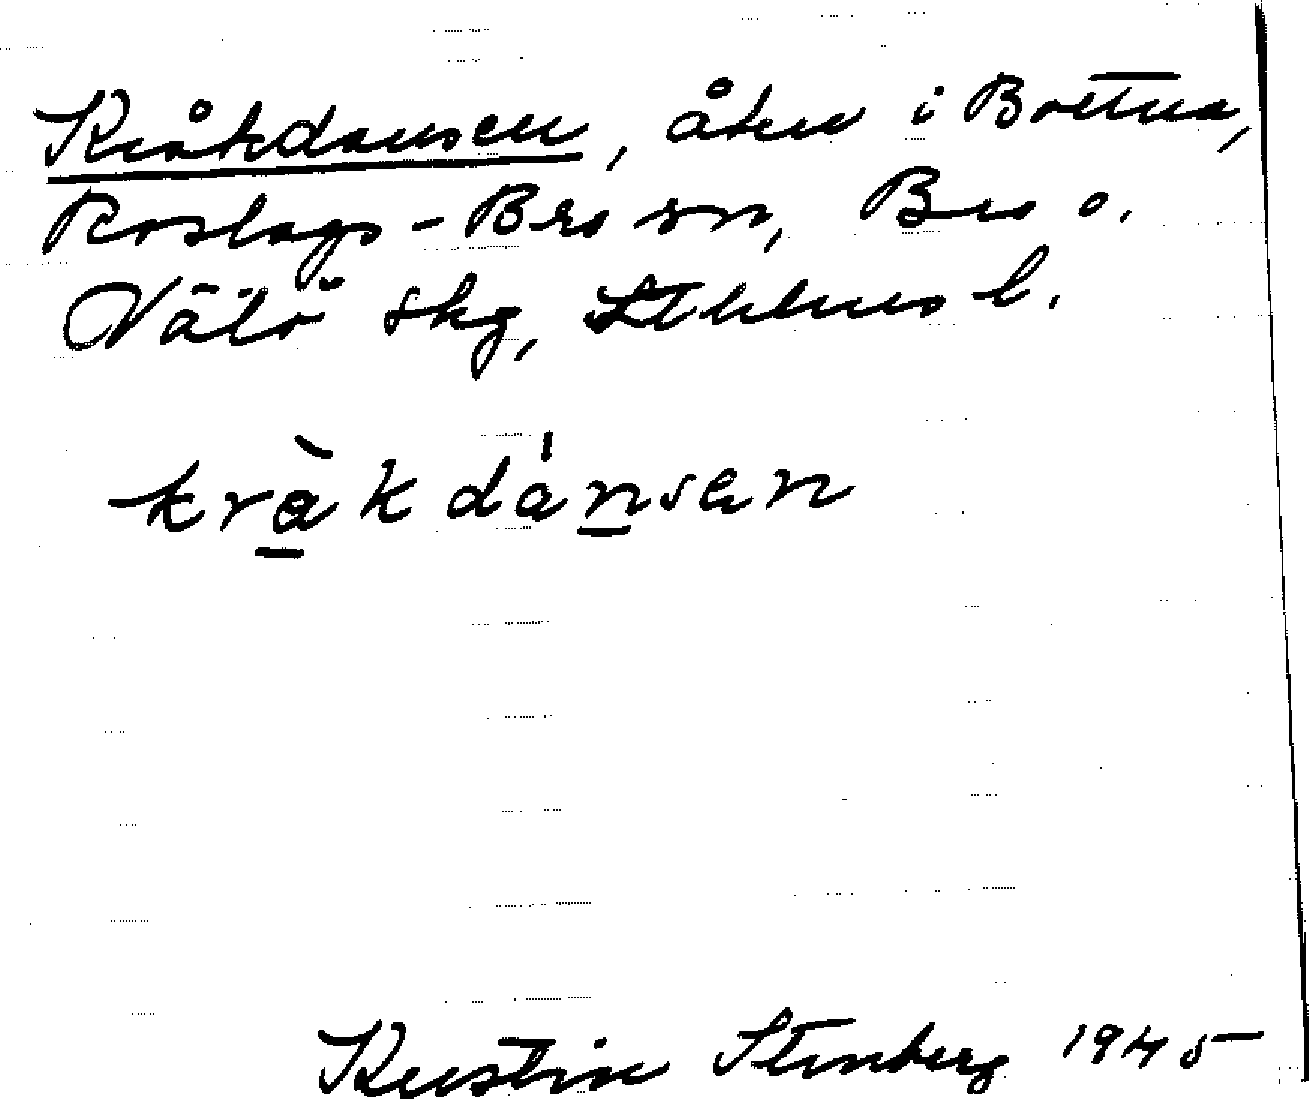 Kråkdansen, åker i Bottna,
Roslags-Bro sn, Bro o.
Vätö skg, Sthlms l.
kràkdánsen
Kerstin Stenberg 1945